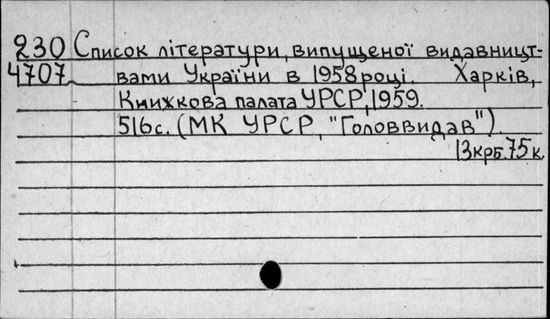 230 Список літератури, випущеної видавницт-
4707 вами України в 1958 році. Харків,
Книжкова палата УРСР, 1959.
516 с. (МК УРСР, "Головвидав").
13 крб. 75 к.